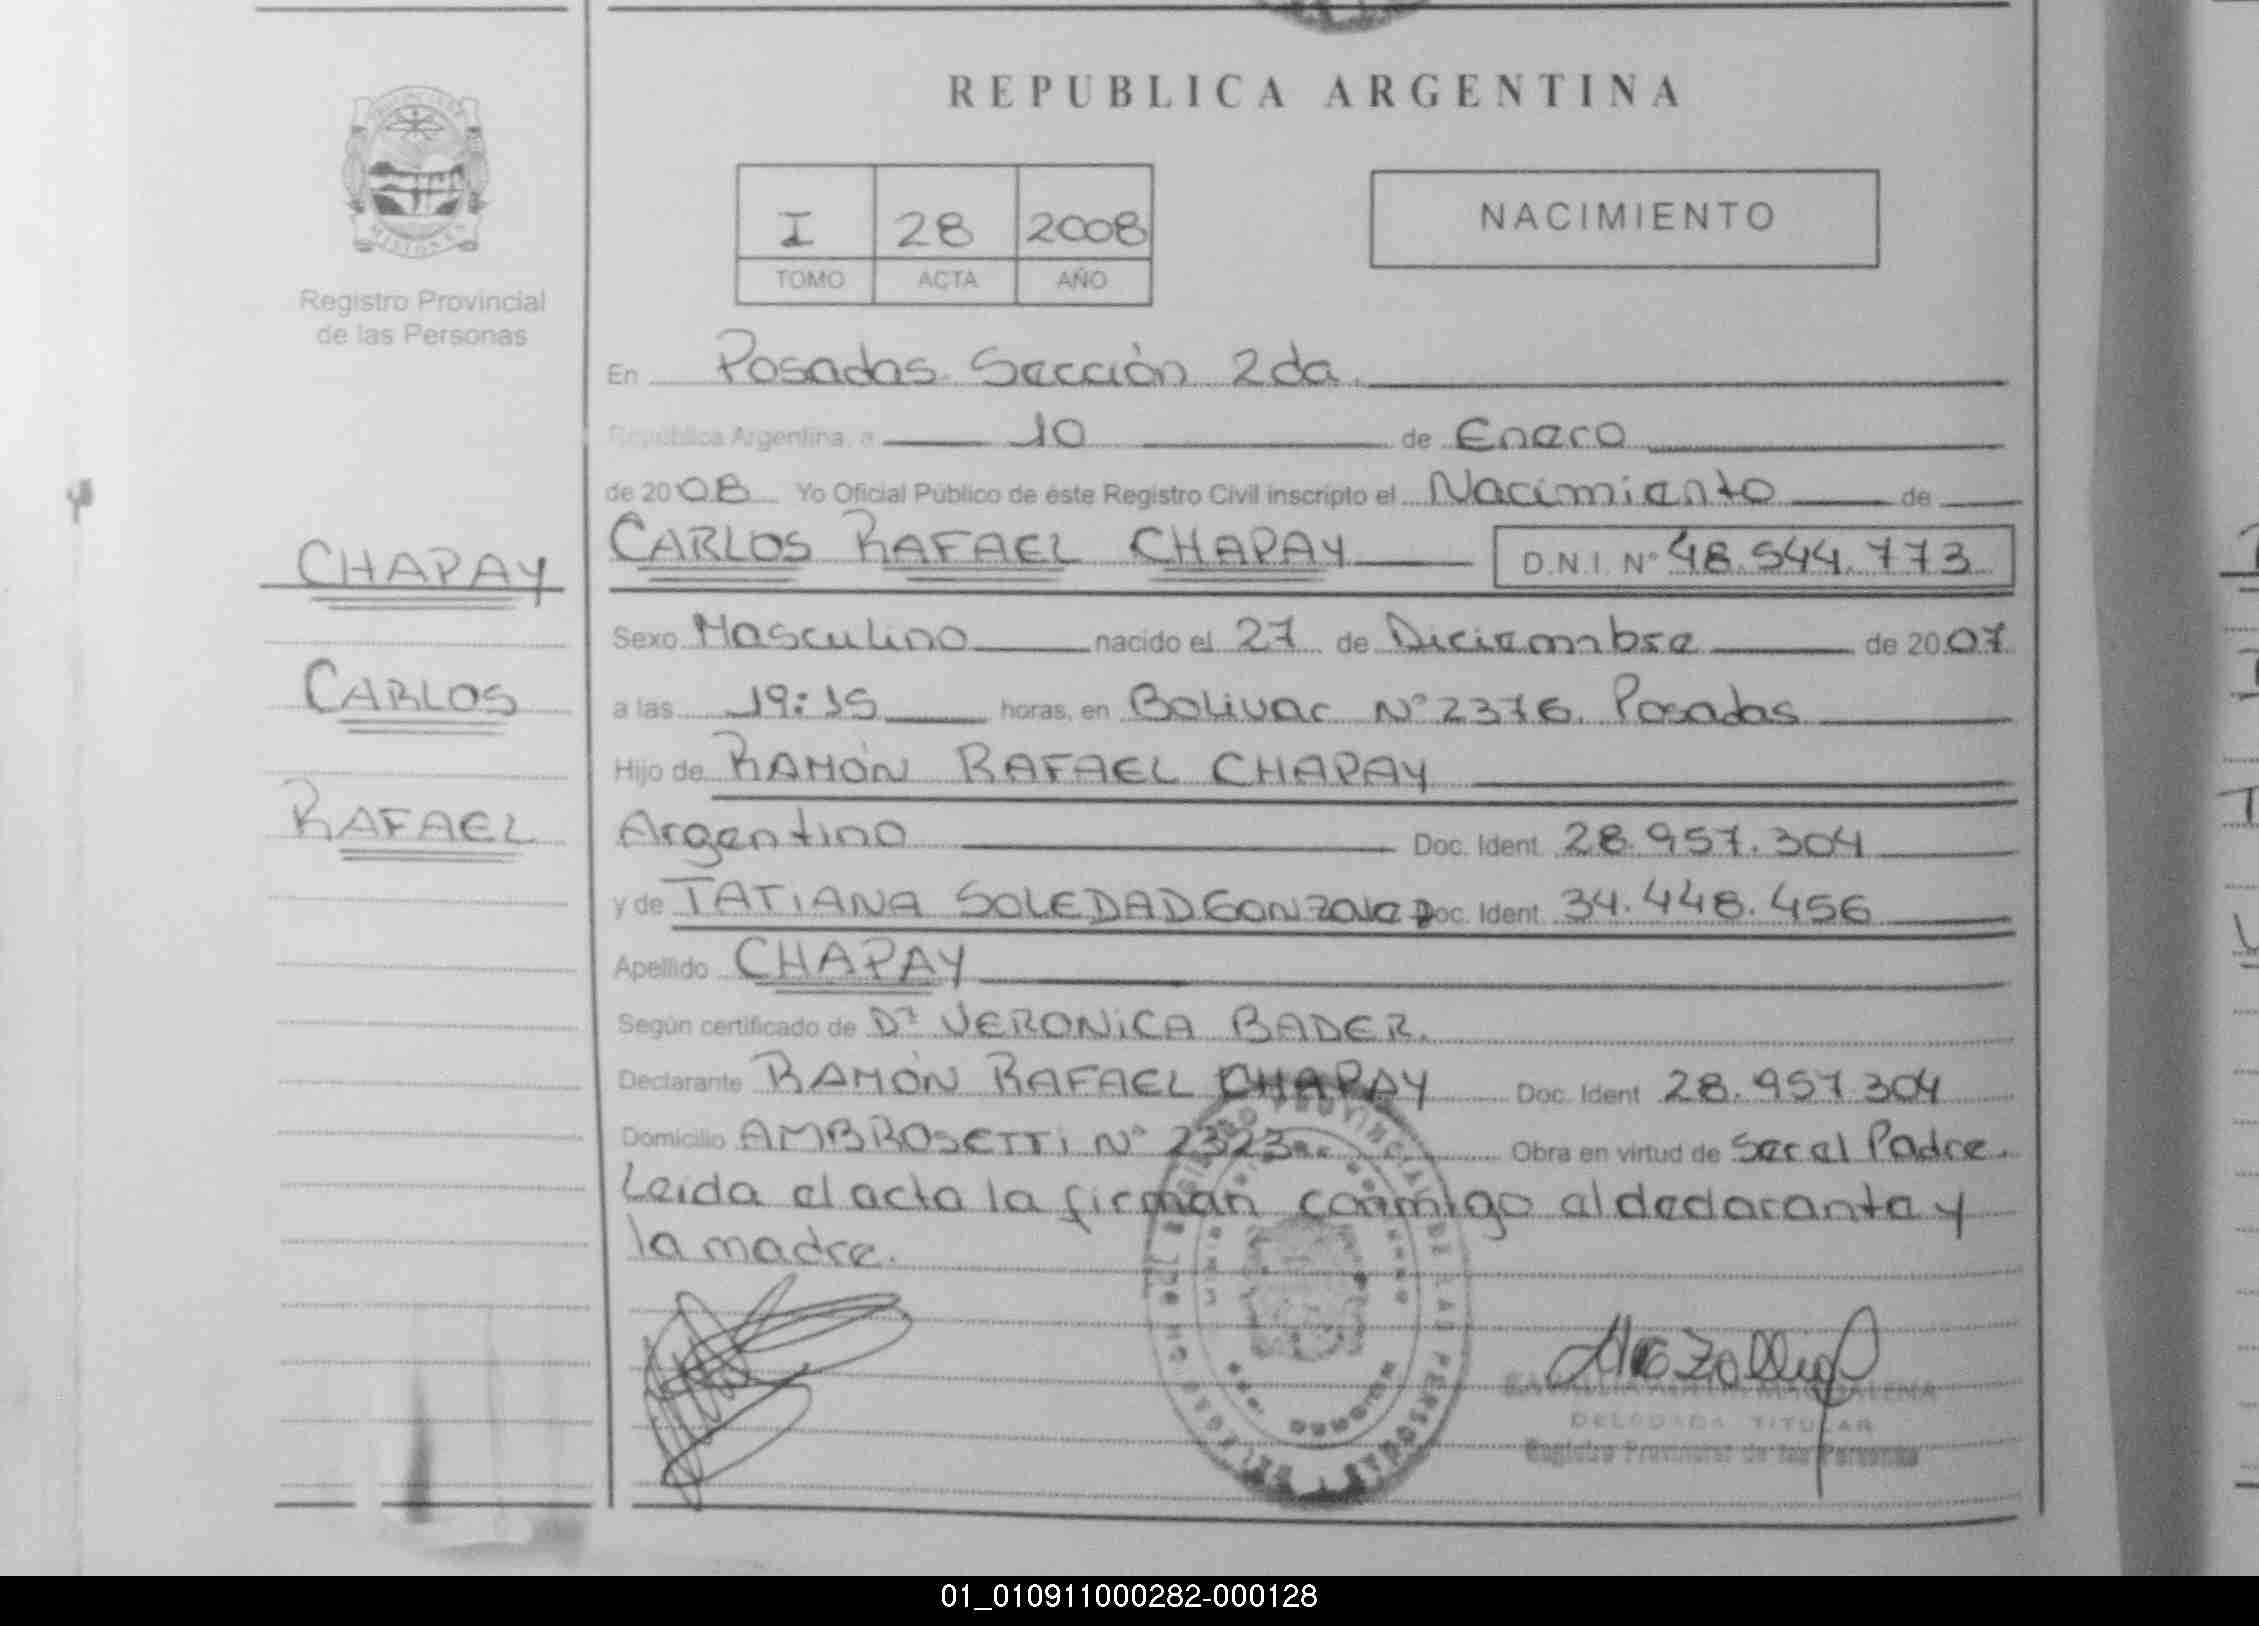 REPUBLICA ARGENTINA
MISIONES
Registro Provincial
de las Personas
I 28 2008
TOMO ACTA AÑO
NACIMIENTO
En Posadas. Sección 2da.
República Argentina, a 10 de Enero
de 2008 Yo Oficial Público de éste Registro Civil inscripto el Nacimiento de
CARLOS RAFAEL CHAPAY D.N.I. Nº 48.544.773
CHAPAY
CARLOS
RAFAEL
Sexo Masculino nacido el 27 de Diciembre de 2007
a las 19:15 horas, en Bolivar Nº 2376. Posadas
Hijo de RAMÓN RAFAEL CHAPAY
Argentino Doc. Ident. 28.957.304
y de TATIANA SOLEDAD GONZALEZ Doc. Ident. 34.448.456
Apellido CHAPAY
Según certificado de Dª VERONICA BADER.
Declarante RAMÓN RAFAEL CHAPAY Doc. Ident 28.957.304
Domicilio AMBROSETTI Nº 2323 Obra en virtud de Ser el Padre.
Leida el acta la firman conmigo el declarante y
la madre.
REGISTRO PROVINCIAL DE LAS PERSONAS
MAGDALENA
DELEGADA TITULAR
Registro Provincial de las Personas
01_010911000282-000128